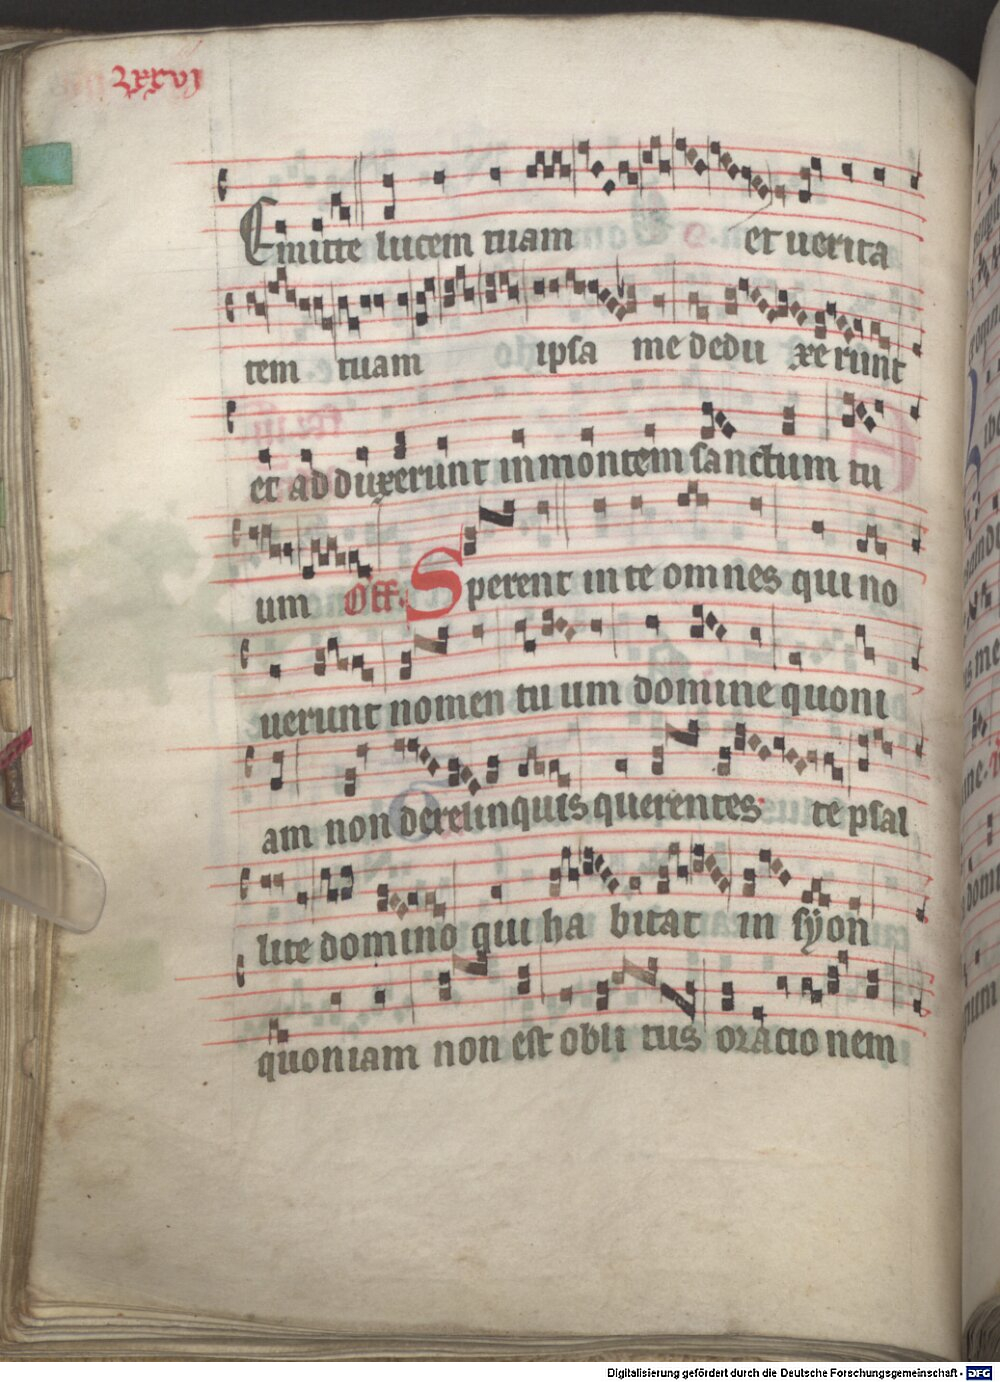 lxxxvi
Emitte lucem tuam et uerita
tem tuam ipsa me dedu xe runt
et ad duxerunt in montem sanctum tu
um Off. Sperent in te om nes qui no
uerunt nomen tu um domine quoni
am non derelinquis querentes te psal
lite domino qui ha bitat in sÿon
quoniam non est obli tus oracio nem
Digitalisierung gefördert durch die Deutsche Forschungsgemeinschaft - DFG